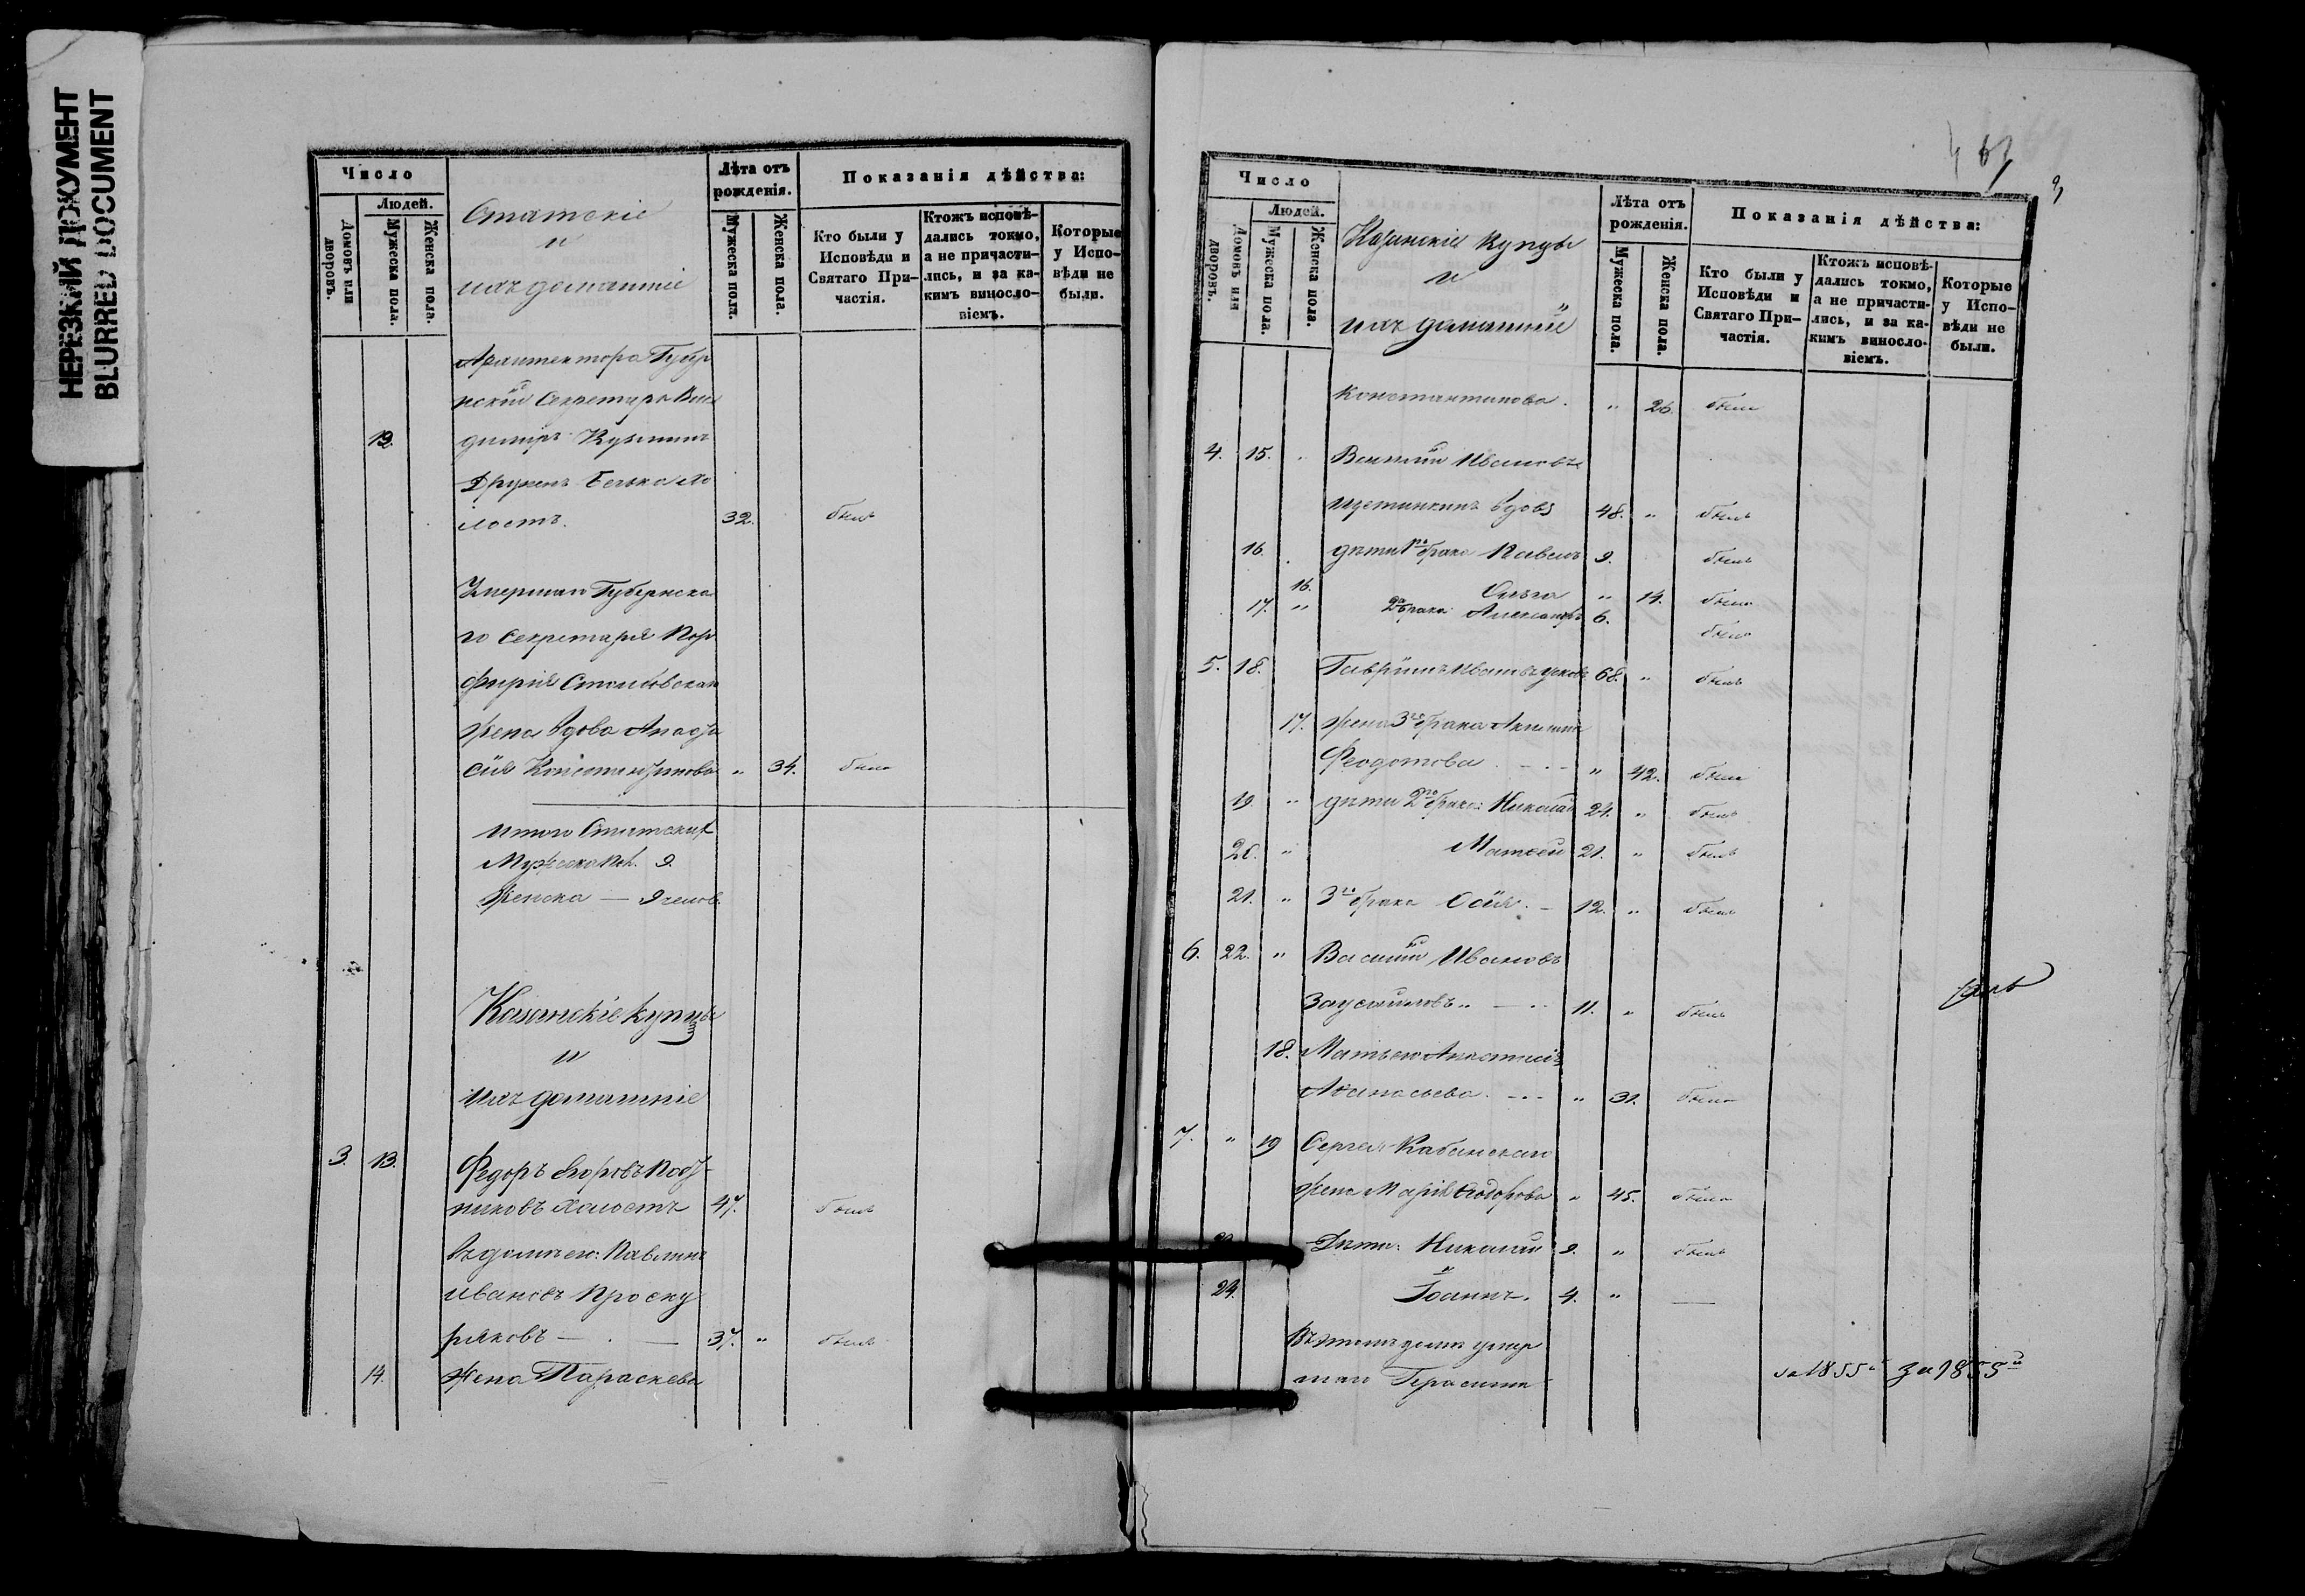 НЕРЕЗКИЙ ДОКУМЕНТ
BLURRED DOCUMENT
Число
Людей.
Домовъ или дворовъ.
Мужеска пола.
Женска пола.
Статскіе
и
ихъ домашніе
Лѣта отъ рожденія.
Мужеска пола.
Женска пола.
Показанія дѣйства:
Кто были у Исповѣди и Святаго Причастія.
Ктожъ исповѣдались токмо, а не причастились, и за какимъ винословіемъ.
Которые у Исповѣди не были.
Архитектора Губер
нскій Секретарь Вла
12. димиръ Кузминъ
лостъ. 32. былъ
Умершаго Губернска
го Секретаря Пор
фирія
жена вдова Анаста
сія Константинова „ 34. была
Итого Статскихъ
Мужеска пол. 9.
Женска — 9 челов.
Казанскіе купцы
и
ихъ домашніе
3. 13. Федоръ Егоровъ
никовъ холостъ 47. былъ
въ домѣ его: Павлинъ
Ивановъ Проску
ряковъ — . — 37. „ былъ
14. Жена Параскева
61
Число
Людей.
Домовъ или дворовъ.
Мужеска пола.
Женска пола.
Казанскіе купцы
и
ихъ домашніе
Лѣта отъ рожденія.
Мужеска пола.
Женска пола.
Показанія дѣйства:
Кто были у Исповѣди и Святаго Причастія.
Ктожъ исповѣдались токмо, а не причастились, и за какимъ винословіемъ.
Которые у Исповѣди не были.
Константинова. „ 26. была
4. 15. Василій Ивановъ
Щетинкинъ вдовъ 48. „ былъ
16. дѣти 1го брака Павелъ 9. былъ
16. Ольга „ 14. была
17. „ 2го брака Александръ 6. былъ
5. 18. Гавріилъ Ивановъ 68. „ былъ
17. жена 3го брака Акилина
Феодотова . — . — „ 42. была
19. „ дѣти 2го брака: Николай 24. „ былъ
20. „ Матвей 21. „ былъ
21. „ 3го брака Осія. — 12. „ былъ
6. 22. „ Василій Ивановъ
Заусайловъ „ — 11. „ былъ
18. Мать его Анастасія
Аѳанасьева. — „ 31. была
7. „ 19 Сергея Кабанскаго
жена Марія Ѳеодорова „ 45. была
Дѣти: Николай 9. „ былъ
24. Іоаннъ. 4. „ —
Въ этомъ домѣ умер
шаго Герасима
за 1855й за 1855й